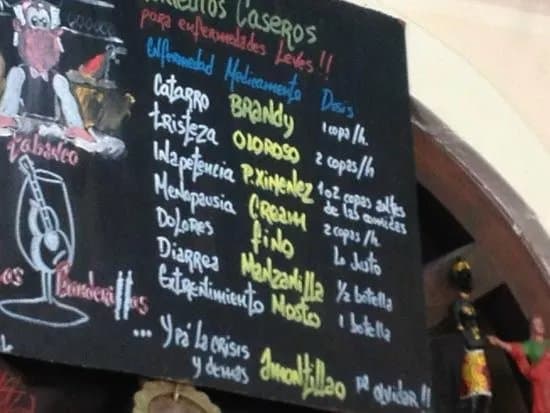 Caseros
para enfermedades leves!!
Enfermedad Medicamento Dosis
Catarro BRANDY 1 copa/h.
Tristeza Oloroso 2 copas/h
Inapetencia P.Ximenez 1 o 2 copas antes de las comidas
Menopausia CREAM 2 copas/h.
Dolores fino Lo justo
Diarrea Manzanilla 1/2 botella
Estreñimiento Mosto 1 botella
... y pa' la crisis
y demás Amontillao pa olvidar!!
Tabanco
Los Banderillas